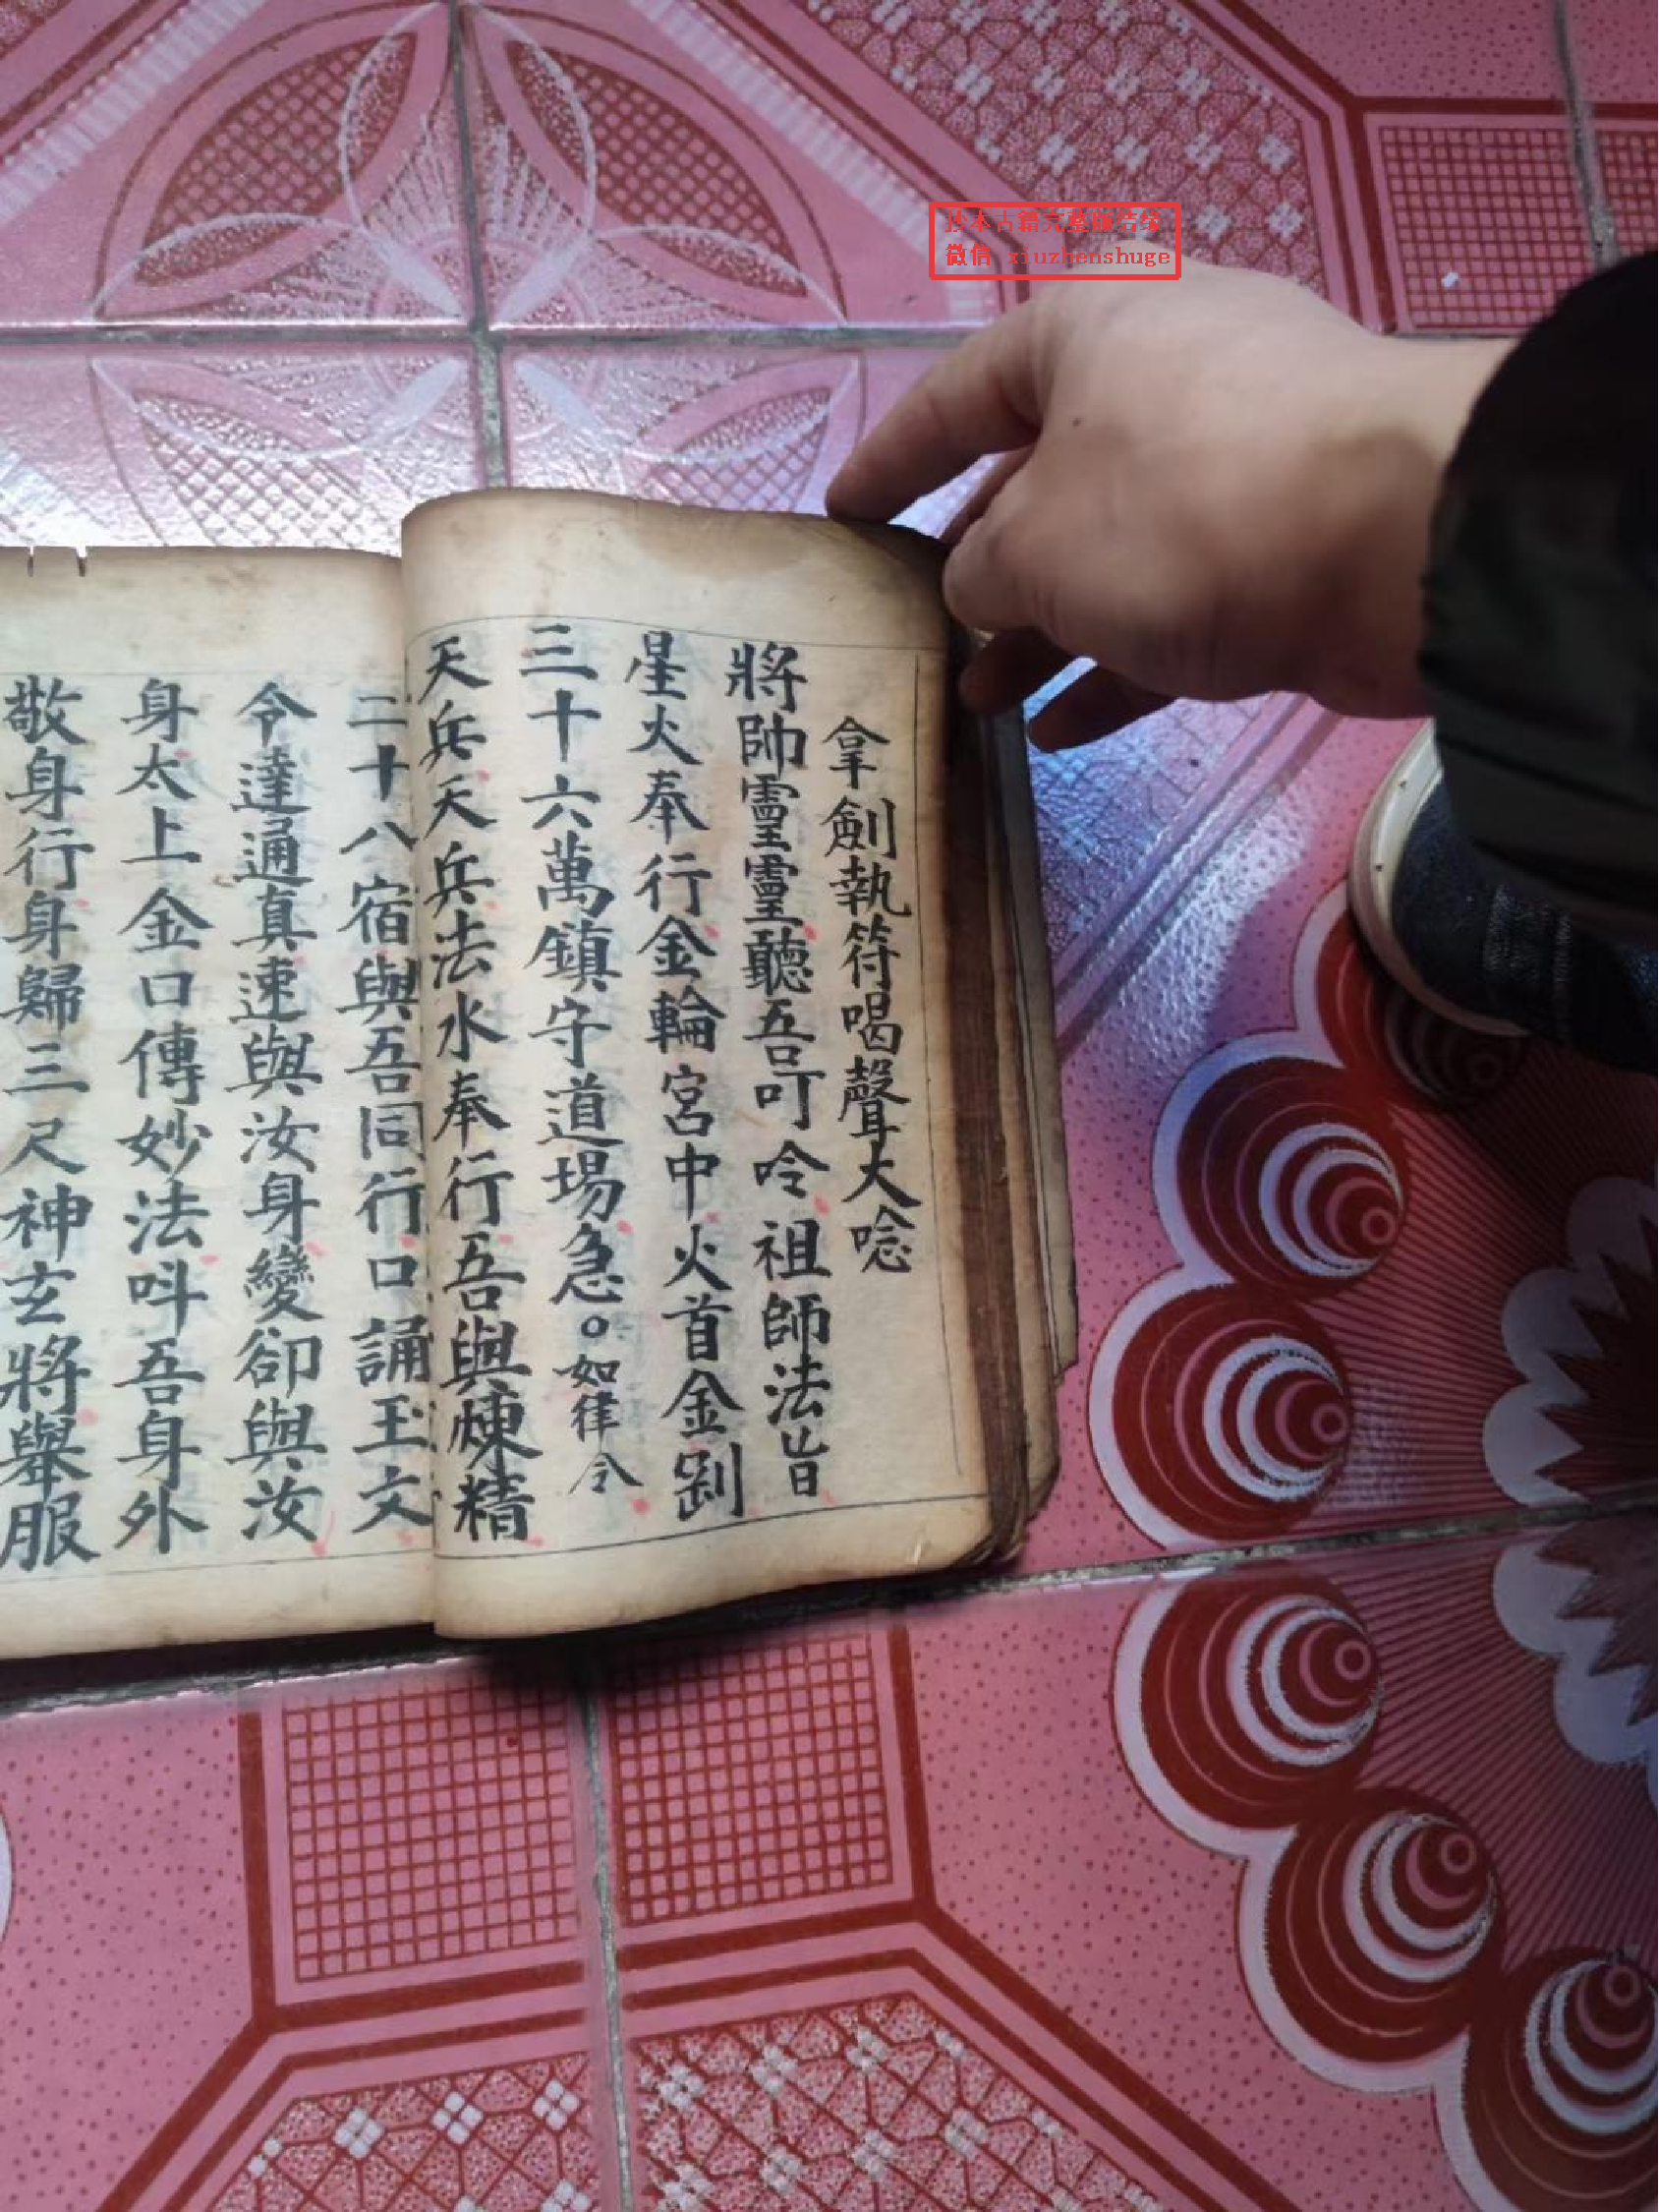 抄本古籍完整版结缘
微信 xiuzhenshuge
拿劍執符喝聲大唸
將帥靈靈聽吾叮呤祖師法旨
星火奉行金輪宮中火首金剛
三十六萬鎮守道場急。如律令
天兵天兵法水奉行吾與煉精
二十八宿與吾同行口誦玉文
令達通真速與汝身變卻與汝
身太上金口傳妙法呌吾身外
敬身行身歸三尺神玄將舉服